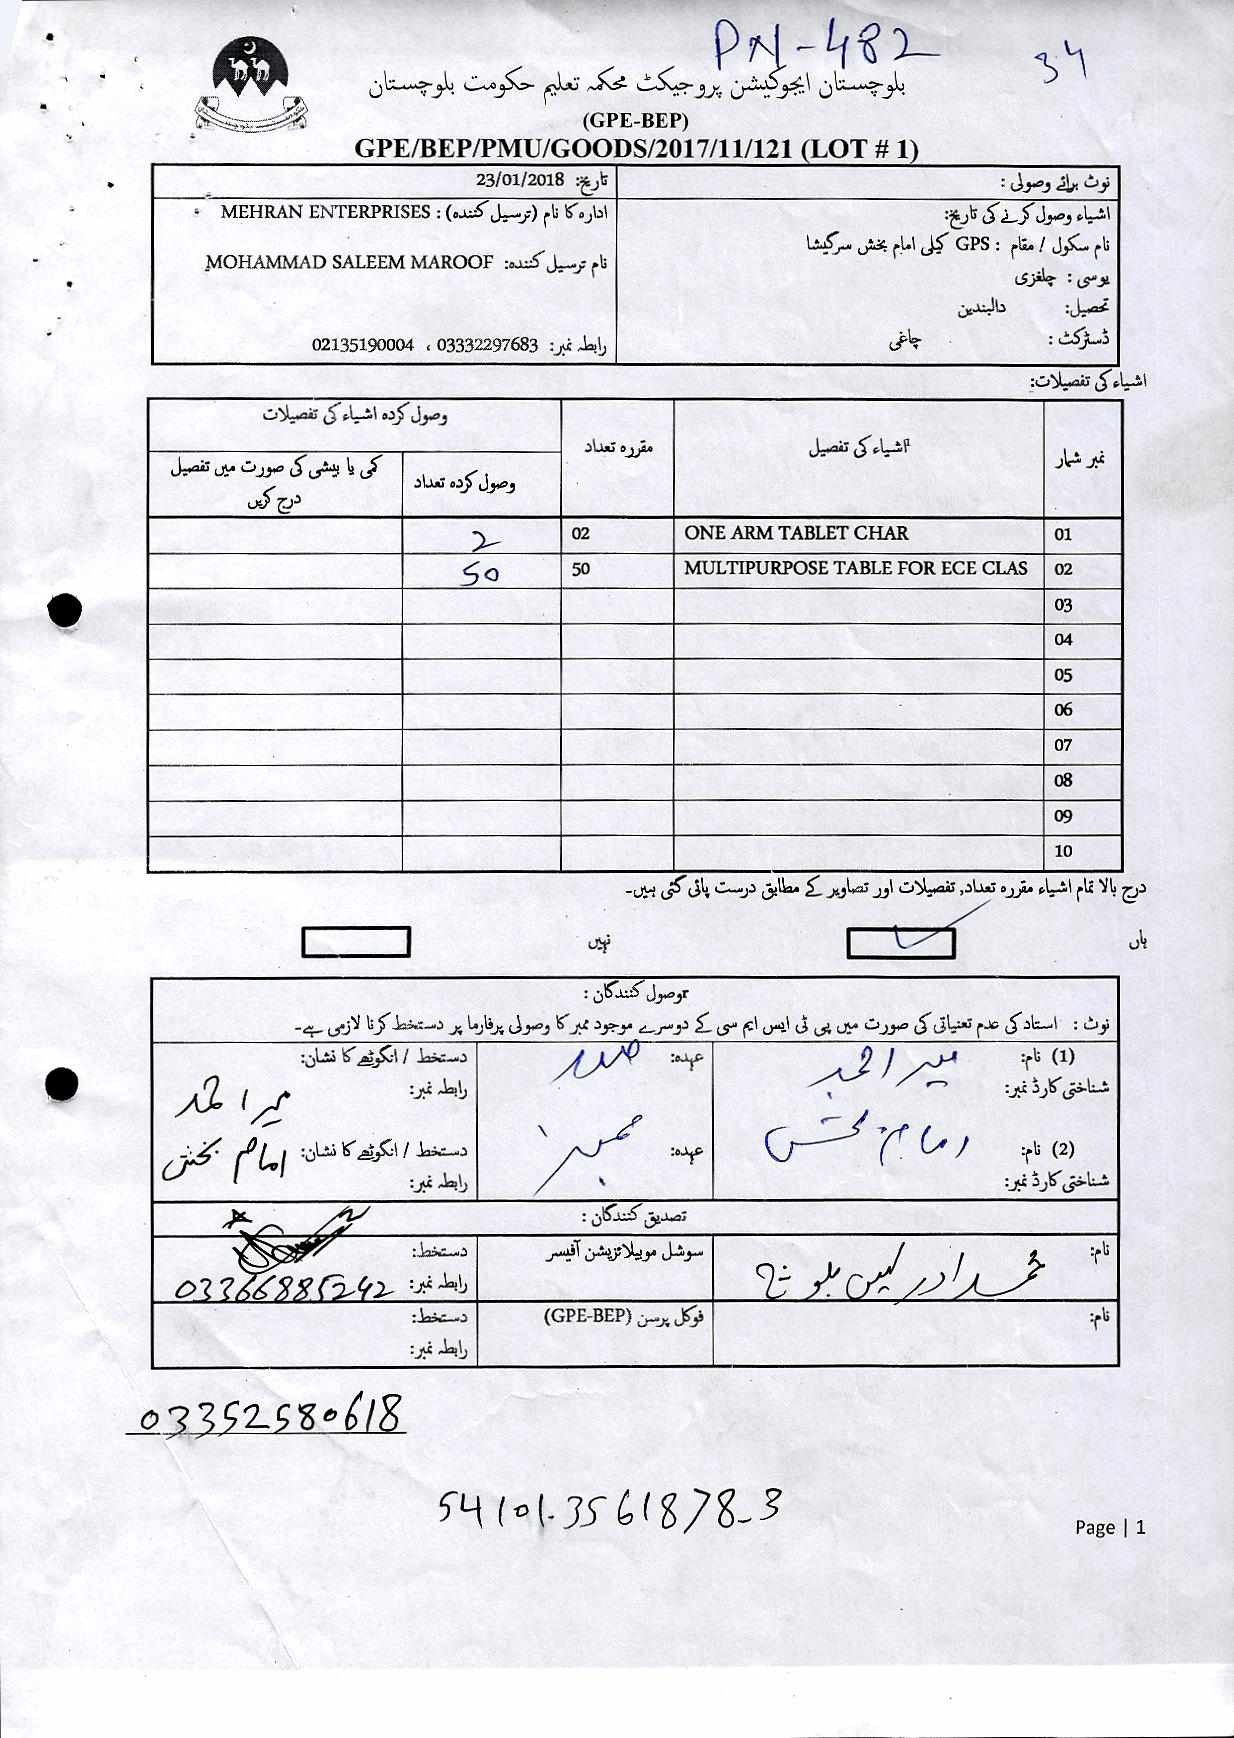 PN-482
34
بلوچستان ایجوکیشن پروجیکٹ محکمہ تعلیم حکومت بلوچستان
(GPE-BEP)
GPE/BEP/PMU/GOODS/2017/11/121 (LOT # 1)
نوٹ برائے وصولی :
تاریخ: 23/01/2018
اشیاء وصول کرنے کی تاریخ:
ادارہ کا نام (ترسیل کنندہ) : MEHRAN ENTERPRISES
نام سکول / مقام : GPS کیلی امام بخش سرگیشا
نام ترسیل کنندہ: MOHAMMAD SALEEM MAROOF
یوسی : چلغزی
تحصیل: دالبندین
ڈسٹرکٹ : چاغی
رابطہ نمبر: 03332297683 ، 02135190004
اشیاء کی تفصیلات:
نمبر شمار اشیاء کی تفصیل مقررہ تعداد وصول کردہ اشیاء کی تفصیلات
وصول کردہ تعداد کمی یا بیشی کی صورت میں تفصیل درج کریں
01 ONE ARM TABLET CHAR 02 2
02 MULTIPURPOSE TABLE FOR ECE CLAS 50 50
03
04
05
06
07
08
09
10
درج بالا تمام اشیاء مقررہ تعداد, تفصیلات اور تصاویر کے مطابق درست پائی گئی ہیں۔
ہاں نہیں
وصول کنندگان :
نوٹ : استاد کی عدم تعیناتی کی صورت میں پی ٹی ایس ایم سی کے دوسرے موجود ممبر کا وصولی پرفارما پر دستخط کرنا لازمی ہے۔
(1) نام: میر احمد عہدہ: صدر دستخط / انگوٹھے کا نشان: میر احمد
شناختی کارڈ نمبر: رابطہ نمبر:
(2) نام: امام بخش عہدہ: ممبر دستخط / انگوٹھے کا نشان: امام بخش
شناختی کارڈ نمبر: رابطہ نمبر:
تصدیق کنندگان :
نام: محمد ادریس بلوچ سوشل موبیلائزیشن آفیسر دستخط:
رابطہ نمبر: 03366885242
نام: فوکل پرسن (GPE-BEP) دستخط:
رابطہ نمبر:
03352580618
54101-3561878-3
Page | 1